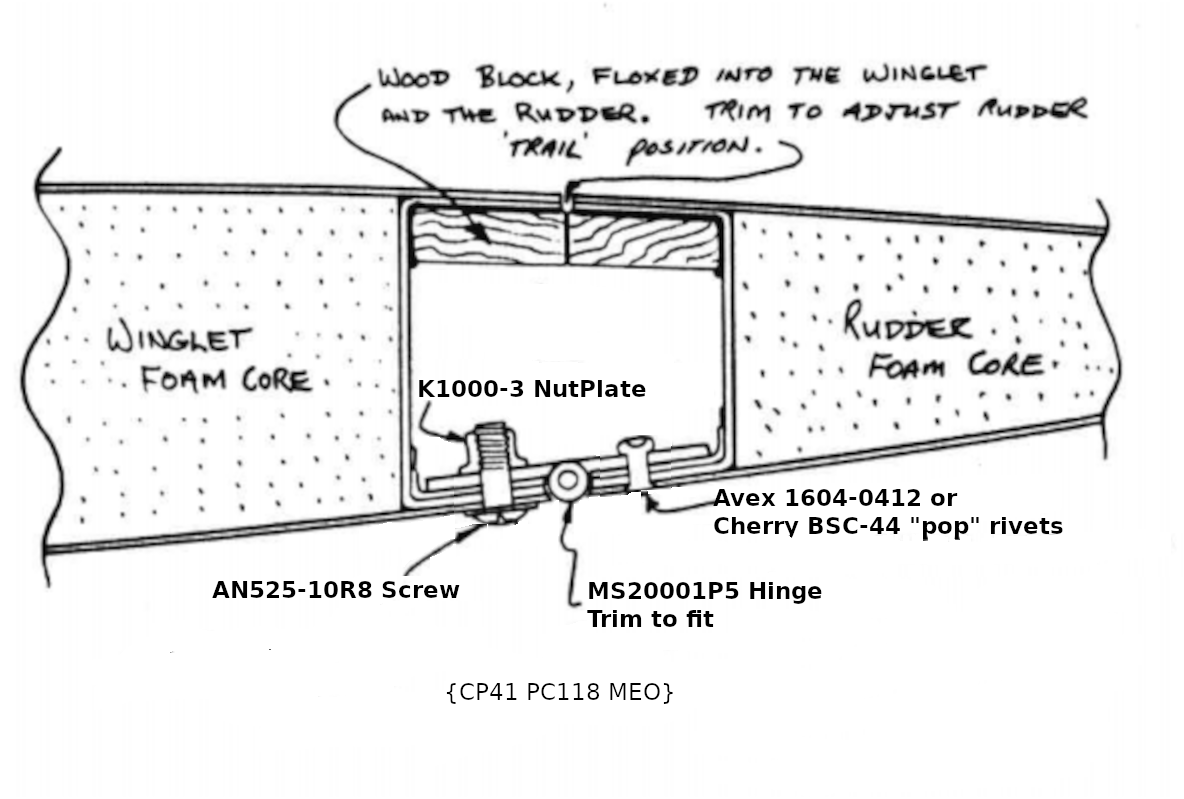 WOOD BLOCK, FLOXED INTO THE WINGLET
AND THE RUDDER. TRIM TO ADJUST RUDDER
'TRAIL' POSITION.
WINGLET
FOAM CORE
RUDDER
FOAM CORE
K1000-3 NutPlate
Avex 1604-0412 or
Cherry BSC-44 "pop" rivets
AN525-10R8 Screw
MS20001P5 Hinge
Trim to fit
{CP41 PC118 MEO}